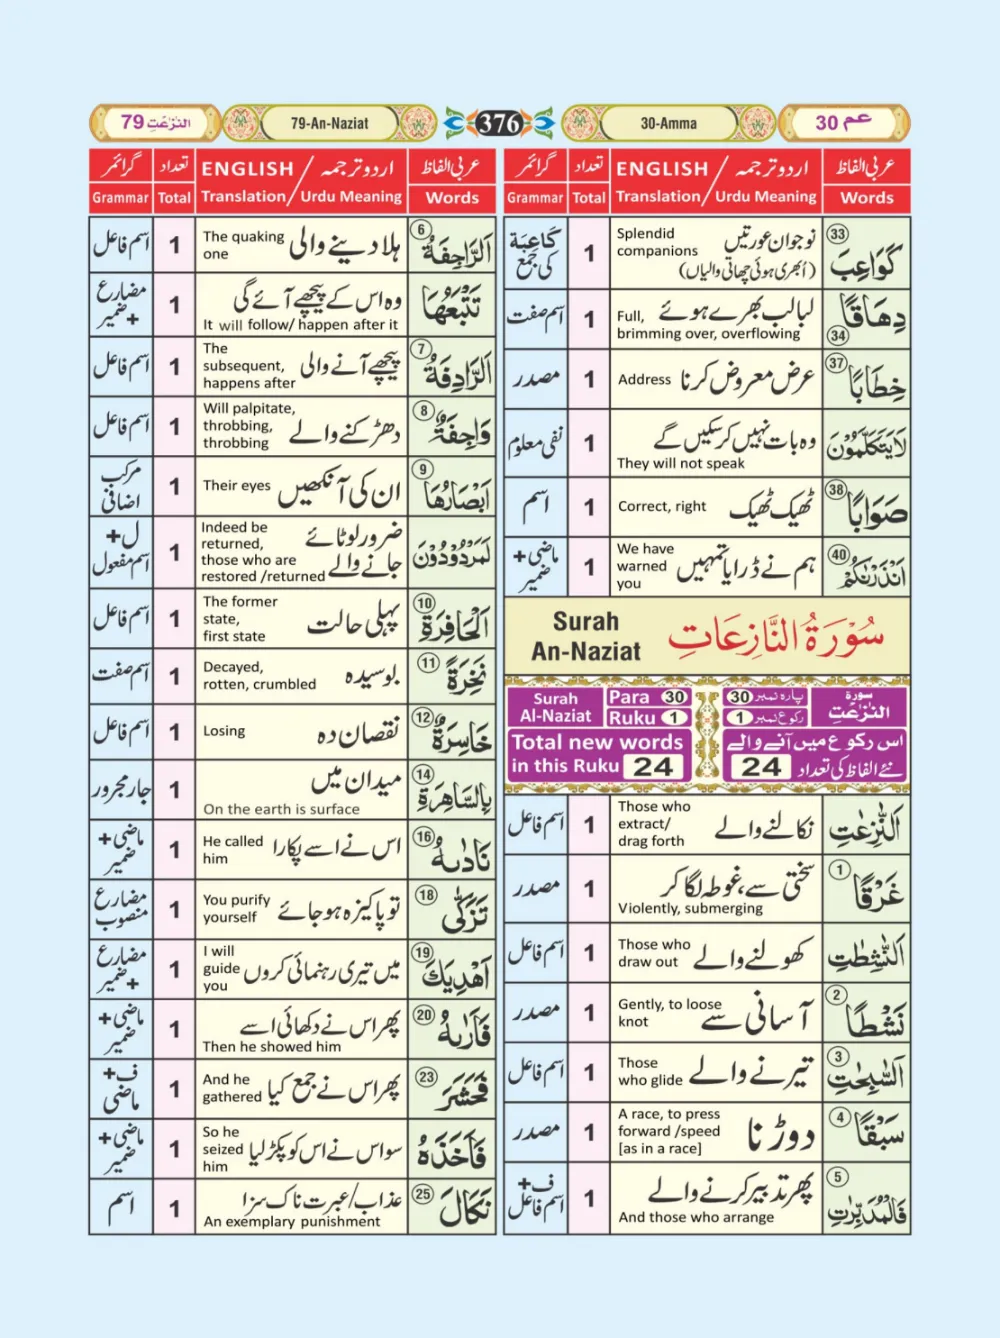 عم 30
30-Amma
376
79-An-Naziat
79 النّٰزعٰتِ
عربی الفاظ
ENGLISH / اردو ترجمہ
تعداد
گرائمر
Words
Translation/ Urdu Meaning
Total
Grammar
33
كَوَاعِبَ
Splendid companions
نوجوان عورتیں
(اُبھری ہوئی چھاتی والیاں)
1
كَاعِبَة کی جمع
دِهَاقًا
34
لبالب بھرے ہوئے
Full, brimming over, overflowing
1
اسم صفت
37
خِطَابًا
عرض معروض کرنا
Address
1
مصدر
لَا يَتَكَلَّمُوْنَ
وہ بات نہیں کرسکیں گے
They will not speak
1
نفی معلوم
38
صَوَابًا
ٹھیک ٹھیک
Correct, right
1
اسم
40
اَنْذَرْنٰكُمْ
ہم نے ڈرایا تمہیں
We have warned you
1
ماضی+ ضمیر
سُوْرَةُ النَّازِعَاتِ
Surah
An-Naziat
سورة
النّٰزعٰتِ
پارہ نمبر 30
رکوع نمبر 1
Para 30
Ruku 1
Surah
Al-Naziat
اس رکوع میں آنے والے
نئے الفاظ کی تعداد 24
Total new words
in this Ruku 24
اَلنّٰزِعٰتِ
نکالنے والے
Those who extract/ drag forth
1
اسم فاعل
1
غَرْقًا
سختی سے، غوطہ لگا کر
Violently, submerging
1
مصدر
اَلنّٰشِطٰتِ
کھولنے والے
Those who draw out
1
اسم فاعل
2
نَشْطًا
آسانی سے
Gently, to loose knot
1
مصدر
3
اَلسّٰبِحٰتِ
تیرنے والے
Those who glide
1
اسم فاعل
4
سَبْقًا
دوڑنا
A race, to press forward /speed [as in a race]
1
مصدر
5
فَالْمُدَبِّرٰتِ
پھر تدبیر کرنے والے
And those who arrange
1
ف+ اسم فاعل
عربی الفاظ
ENGLISH / اردو ترجمہ
تعداد
گرائمر
Words
Translation/ Urdu Meaning
Total
Grammar
6
اَلرَّاجِفَةُ
ہلا دینے والی
The quaking one
1
اسم فاعل
تَتْبَعُهَا
وہ اس کے پیچھے آئے گی
It will follow/ happen after it
1
مضارع + ضمیر
7
اَلرَّادِفَةُ
پیچھے آنے والی
The subsequent, happens after
1
اسم فاعل
8
وَاجِفَةٌ
دھڑکنے والے
Will palpitate, throbbing, throbbing
1
اسم فاعل
9
اَبْصَارُهَا
ان کی آنکھیں
Their eyes
1
مرکب اضافی
لَمَرْدُوْدُوْنَ
ضرور لوٹائے جانے والے
Indeed be returned, those who are restored /returned
1
ل+ اسم مفعول
10
اَلْحَافِرَةِ
پہلی حالت
The former state, first state
1
اسم فاعل
11
نَخِرَةً
بوسیدہ
Decayed, rotten, crumbled
1
اسم صفت
12
خَاسِرَةٌ
نقصان دہ
Losing
1
اسم فاعل
14
بِالسَّاهِرَةِ
میدان میں
On the earth is surface
1
جار مجرور
16
نَادٰىهُ
اس نے اسے پکارا
He called him
1
ماضی+ ضمیر
18
تَزَكّٰى
تو پاکیزہ ہوجائے
You purify yourself
1
مضارع منصوب
19
اَهْدِيَكَ
میں تیری رہنمائی کروں
I will guide you
1
مضارع + ضمیر
20
فَاَرٰىهُ
پھر اس نے دکھائی اسے
Then he showed him
1
ماضی+ ضمیر
23
فَحَشَرَ
پھر اس نے جمع کیا
And he gathered
1
ف+ ماضی
فَاَخَذَهُ
سو اس نے اس کو پکڑ لیا
So he seized him
1
ماضی+ ضمیر
25
نَكَالَ
عذاب/عبرت ناک سزا
An exemplary punishment
1
اسم